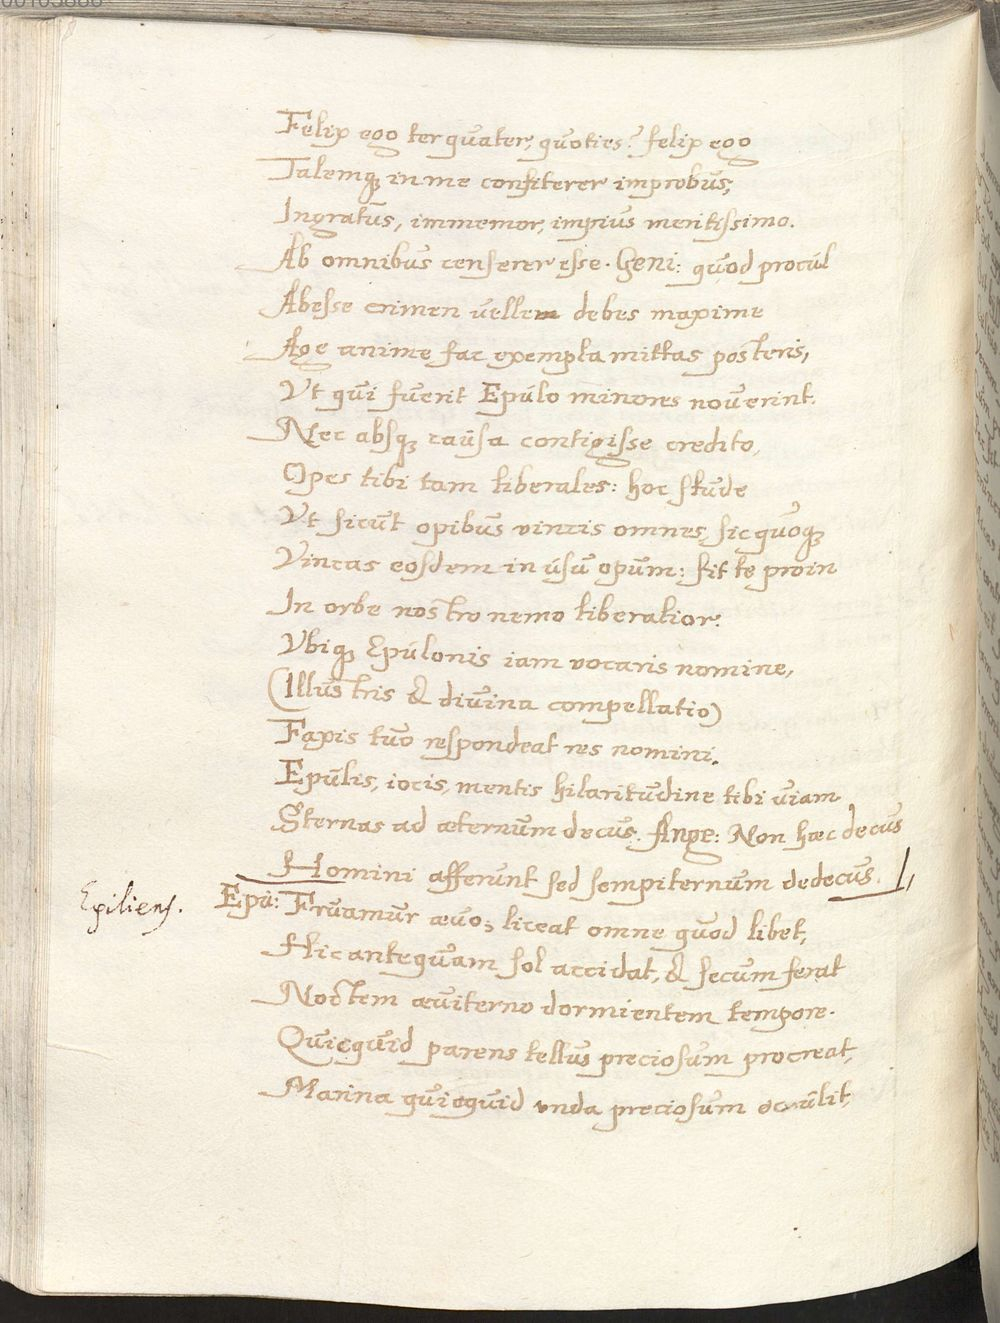 Felix ego ter quater, quoties? felix ego
Talemq; in me confiterer improbus,
Ingratus, immemor, impius meritissimo.
Ab omnibus censerer esse. Geni: quod procul
Abesse crimen vellem debes maxime
Age anime fac exempla mittas posteris,
Vt qui fuerit Epulo minores nouerint.
Nec absq; causa contigisse credito,
Opes tibi tam liberales: hoc stude
Vt sicut opibus vincis omnes, sic quoq;
Vincas eosdem in usu opum: sit te proin
In orbe nostro nemo liberalior.
Vbiq; Epulonis iam vocaris nomine,
(Illustris & diuina compellatio)
Faxis tuo respondeat res nomini.
Epulis, iocis, mentis hilaritudine tibi uiam
Sternas ad æternum decus. Ange: Non hæc decus
Homini afferunt sed sempiternum dedecus.
Epiliens.
Epu: Fruamur æuo; liceat omne quod libet,
Hic antequam sol accidat, & secum ferat
Noctem æuiterno dormientem tempore.
Quicquid parens tellus preciosum procreat,
Marina quicquid vnda preciosum occulit,